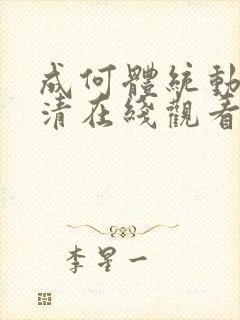 成何體統動
清在綫觀看
李星一